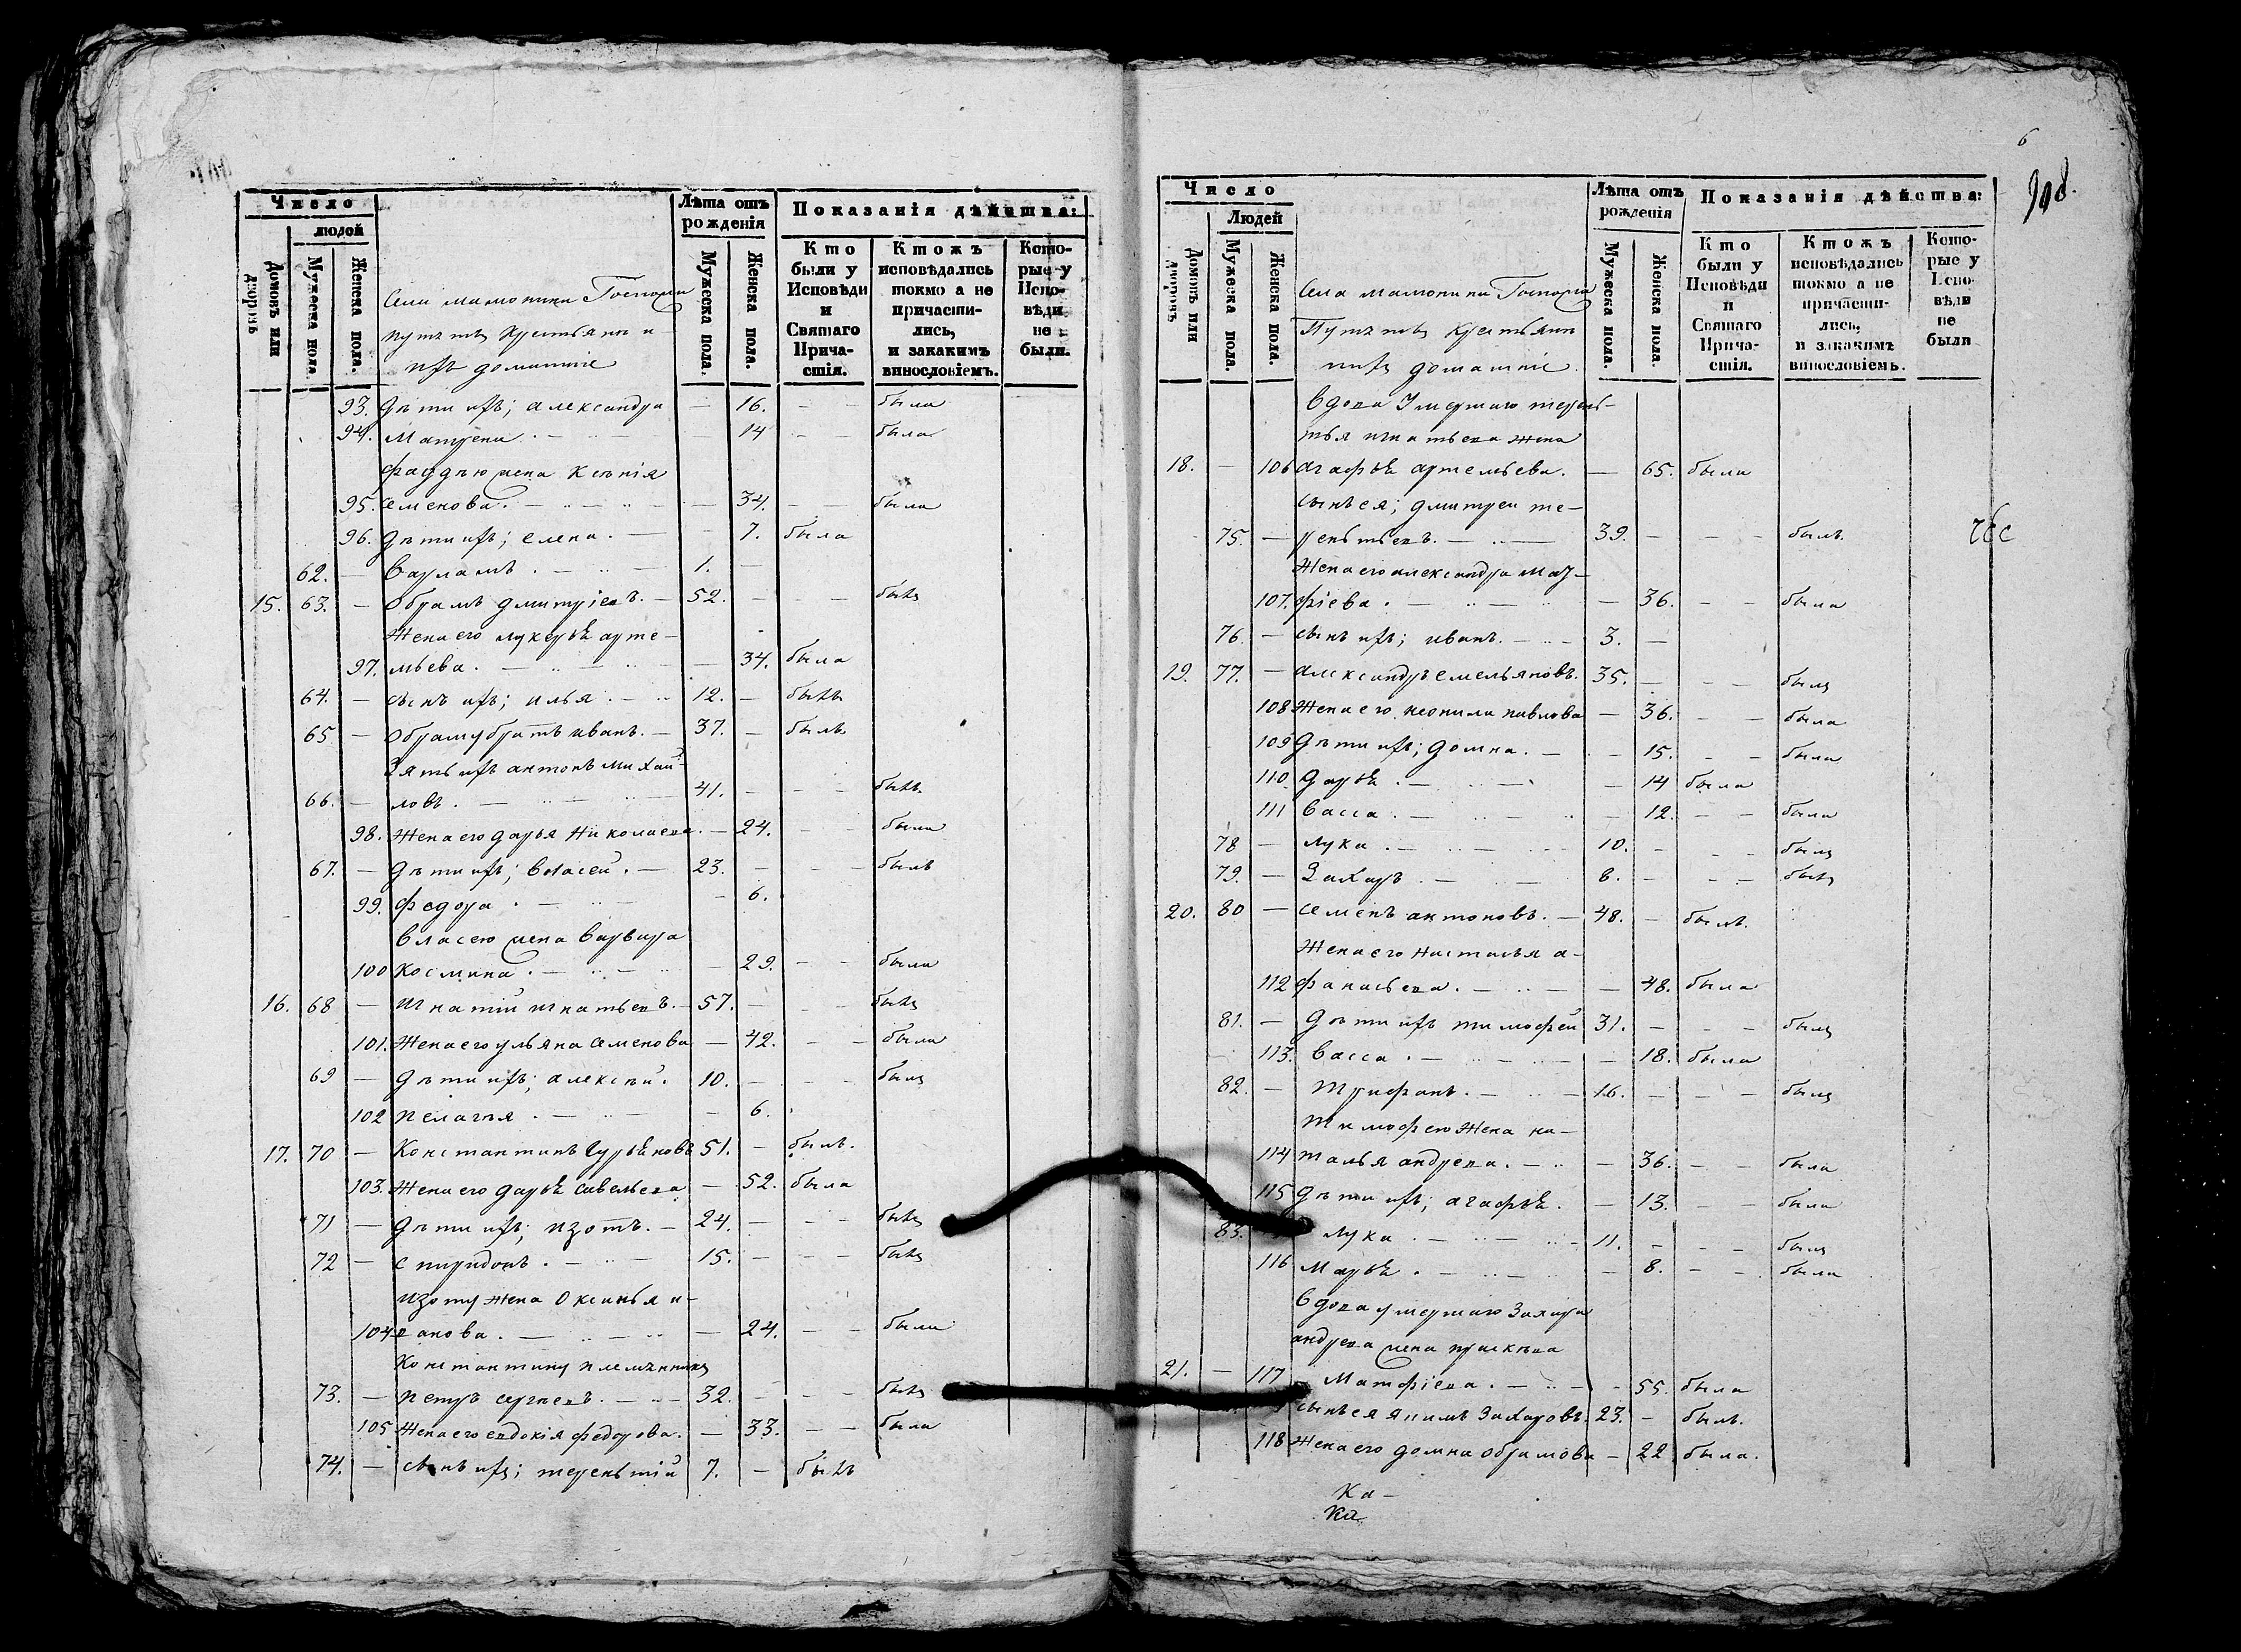 Число
людей
Домовъ или дворовъ
Мужеска пола.
Женска пола.
Лѣта отъ рожденія
Мужеска пола.
Женска пола.
Показанія дѣйства:
Кто были у Исповѣди и Святаго Причастія.
Ктожъ исповѣдались токмо а не причастились, и закакимъ винословіемъ.
Которые у Исповѣди не были.
Села мамонина Господи
крестьяне и
ихъ домашніе
93. дѣти ихъ; александра — 16. — — была
94. Матрена. — — 14 — — была
жена Ксенія
95. семенова. — — 34. — — была
96. дѣти ихъ; елена. — — 7. была
62. — варламъ. — 1. —
15. 63. — Обрамъ дмитріевъ. — 52. — — — былъ
Жена его лукерья арте-
97. мьева. — — 34. была
64. — сынъ ихъ; илья. — 12. — былъ
65 — Обраму братъ иванъ. — 37. — былъ
Зять ихъ антонъ михай-
66. — ловъ. — 41. — — — былъ.
98. Жена его дарья николаева. — 24. — — была
67. — дѣти ихъ; власей. — 23. — — — былъ
99. федора. — — 6.
власею жена варвара
100 космина. — — 29. — — была
16. 68 — игнатій игнатьевъ. — 57. — — былъ
101. Жена его ульяна семенова — 42. — — была
69 — дѣти ихъ; алексѣй. 10. — — — былъ
102 пелагѣя. — — 6.
17. 70 — Константинъ Гурьяновъ 51. — былъ.
103. Жена его дарья савельева — 52. была
71 — дѣти ихъ; изотъ. — 24. — — — былъ
72 — спиридонъ. — 15. — — — былъ
изоту жена Оксинья и-
104 ванова. — — 24. — — была
Константину племянникъ
73. — петръ сергѣевъ. — 32. — — — былъ
105 Жена его евдокія федорова. — 33. — — была
74. — сынъ ихъ; терентій 7. — былъ
6
Число
Людей
Домовъ или дворовъ
Мужеска пола.
Женска пола.
Лѣта отъ рожденія
Мужеска пола.
Женска пола.
Показанія дѣйства:
Кто были у Исповѣди и Святаго Причастія.
Ктожъ исповѣдались токмо а не причастились, и закакимъ винословіемъ.
Которые у Исповѣди не были
Села мамонина Господи
крестьяне
ихъ домашніе.
вдова Умершаго терен-
тья игнатьева жена
18. — 106 агафья артемьева. — 65. была
сынъ ея; дмитрей те-
75. — рентьевъ. — 39. — — — былъ.
Жена его александра мат-
107. фіева. — — 36. — — была
76. — сынъ ихъ; иванъ. — 3. —
19. 77. — александръ емельяновъ. 35. — — — былъ
108 Жена его неонила павлова — 36. — — была
109 дѣти ихъ; домна. — — 15. — — была
110 дарья. — — 14 была
111 васса. — — 12. — — была
78 — лука. — 10. — — — былъ
79. — Захаръ. — 8. — — — былъ
20. 80 — семенъ антоновъ. — 48. — былъ.
Жена его настасья а-
112 фанасьева. — — 48. была
81. — дѣти ихъ тимофей 31. — — — былъ
113. васса. — — 18. была
82. — Трифонъ. — 16. — — — былъ
Тимофею жена на-
114 талья андреева. — — 36. — — была
115 дѣти ихъ; агафья. — 13. — — была
83. лука. — 11. — — — былъ
116 Марья. — — 8. — — была
вдова умершаго Захара
андреева жена прасковья
21. — 117 Матфіева. — — 55. была
сынъ ея якимъ Захаровъ. 23. — былъ.
118 Жена его домна обрамова — 22 была.
Ка-
Ка